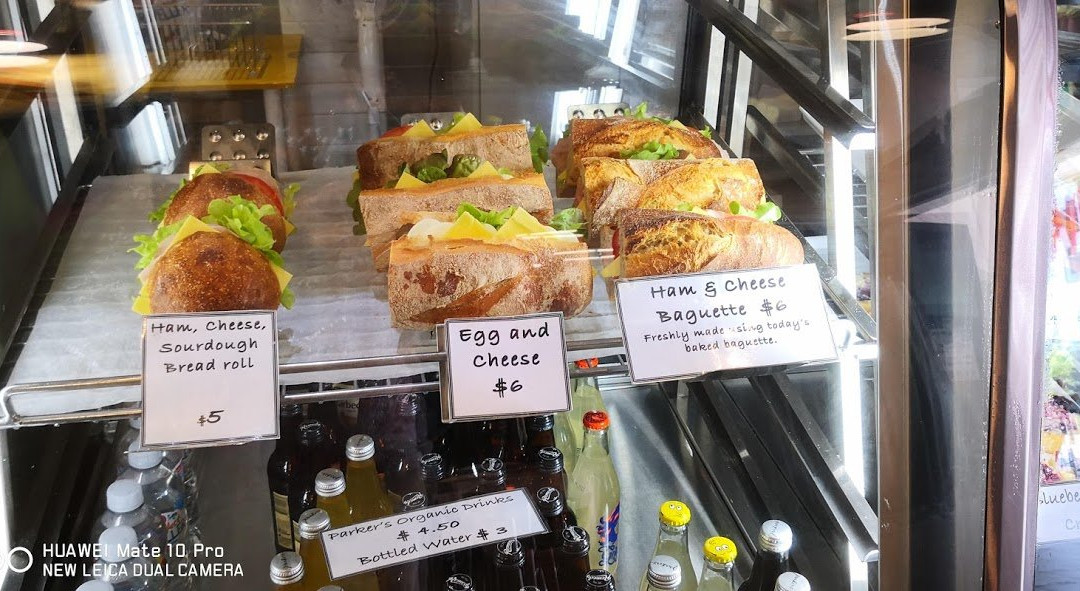 Ham, Cheese,
Sourdough
Bread roll
$5
Egg and
Cheese
$6
Ham & Cheese
Baguette $6
Freshly made using today's
baked baguette.
Parker's Organic Drinks
$4.50
Bottled Water $3
HUAWEI Mate 10 Pro
NEW LEICA DUAL CAMERA